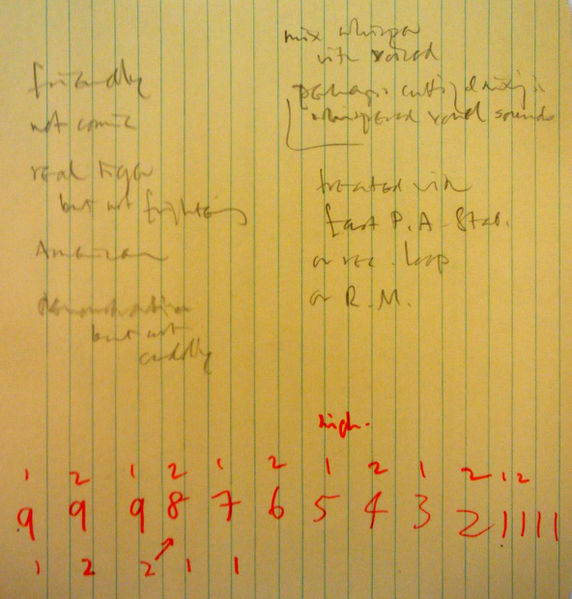 friendly
not comic
real tiger
but not frightening
American
demonstrative
but not
cuddly
mix whisper
with voiced
perhaps cutting & mixing
whispered vowel sounds
treated with
fast P.A-Stab.
or rec. loop
or R.M.
high.
1 2 1 2 1 2 1 2 1 2 1 2
9 9 9 8 7 6 5 4 3 2 1 1 1 1
1 2 2 1 1